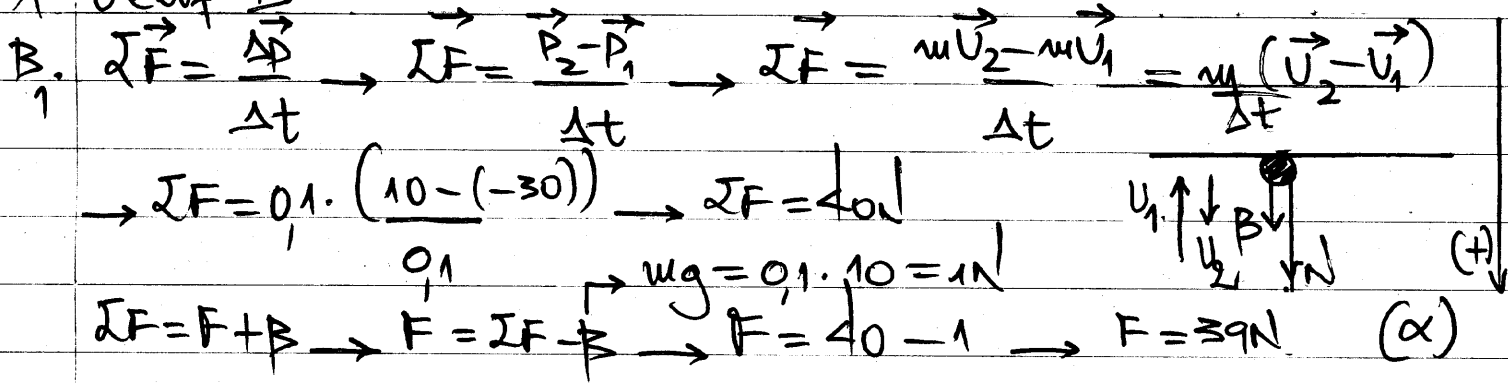 B₁. ΣF⃗ = Δp⃗/Δt → ΣF⃗ = (P⃗₂ - P⃗₁)/Δt → ΣF⃗ = (mU⃗₂ - mU⃗₁)/Δt = m/Δt (U⃗₂ - U⃗₁)
→ ΣF = 0,1 · (10 - (-30))/0,1 → ΣF = 40N
U₁ U₂ B N (+)
→ mg = 0,1 · 10 = 1N
ΣF = F + B → F = ΣF - B → F = 40 - 1 → F = 39N (α)